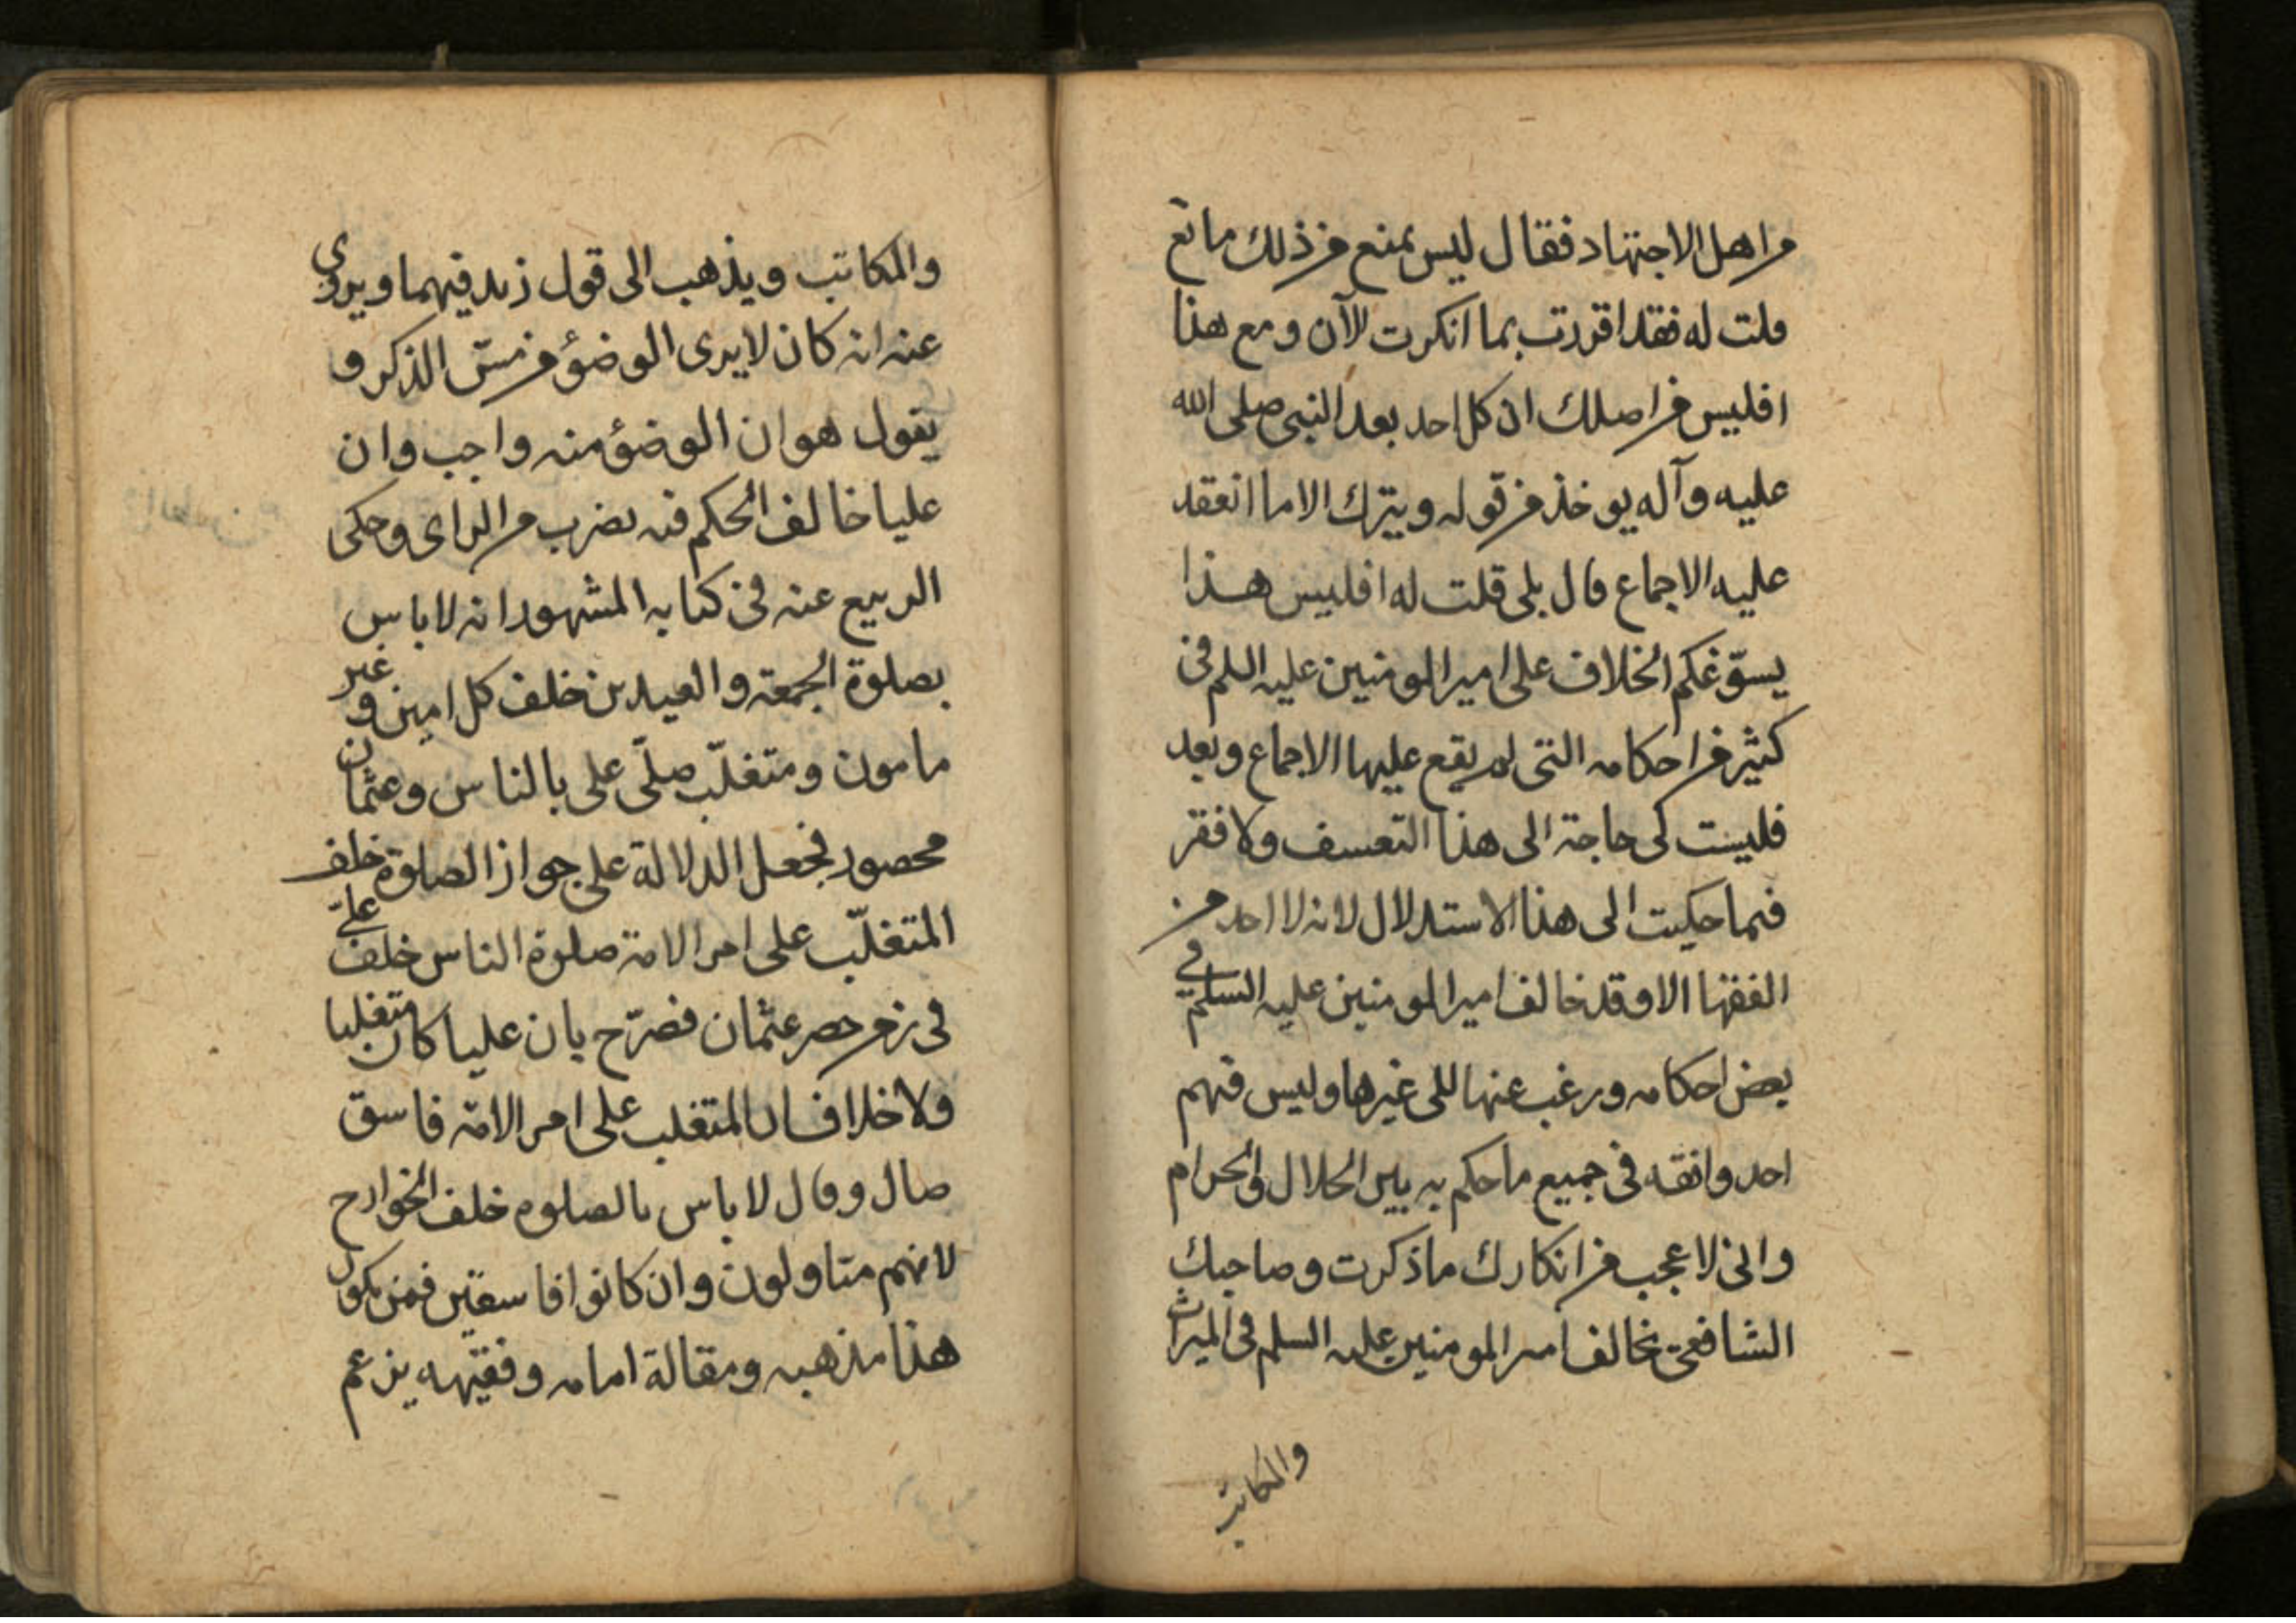 من اهل الاجتهاد فقال ليس يمنع من ذلك مانع
قلت له فقد اقررت بما انكرت الآن ومع هذا
افليس من اصلك ان كل احد بعد النبى صلى الله
عليه وآله يوخذ من قوله ويترك الا ما انعقد
عليه الاجماع قال بلى قلت له افليس هذا
يسوّغكم الخلاف على امير المومنين عليه السلم فى
كثير من احكامه التى لم يقع عليها الاجماع وبعد
فليست لى حاجة الى هذا التعسف ولا فقر
فيما حكيت الى هذا الاستدلال لانه لا احد من
الفقها الا وقد خالف امير المومنين عليه السلم فى
بعض احكامه ورغب عنها الى غيرها وليس فيهم
احد وافقه فى جميع ما حكم به بين الحلال والحرام
وانى لاعجب من انكارك ما ذكرت وصاحبك
الشافعى يخالف امير المومنين عليه السلم فى الميراث
والمكاتب
والمكاتب ويذهب الى قول زيد فيهما ويروى
عنه انه كان لا يرى الوضؤ من مسّ الذكر و
يقول هو ان الوضؤ منه واجب وان
عليا خالف الحكم فيه بضرب من الراى وحكى
الربيع عنه فى كتابه المشهور انه لا باس
بصلوة الجمعة والعيدين خلف كل امين وغير
مامون ومتغلّب صلّى على بالناس وعثمان
محصور فجعل الدلالة على جواز الصلوة خلف
المتغلّب على امر الامة صلوة الناس خلف علىّ
فى زمن حصر عثمان فصرّح بان عليا كان متغلبا
ولا خلاف ان المتغلب على امر الامّة فاسق
ضال وقال لا باس بالصلوه خلف الخوارج
لانهم متاولون وان كانوا فاسقين فمن يكون
هذا مذهبه ومقالة امامه وفقيهه يزعم